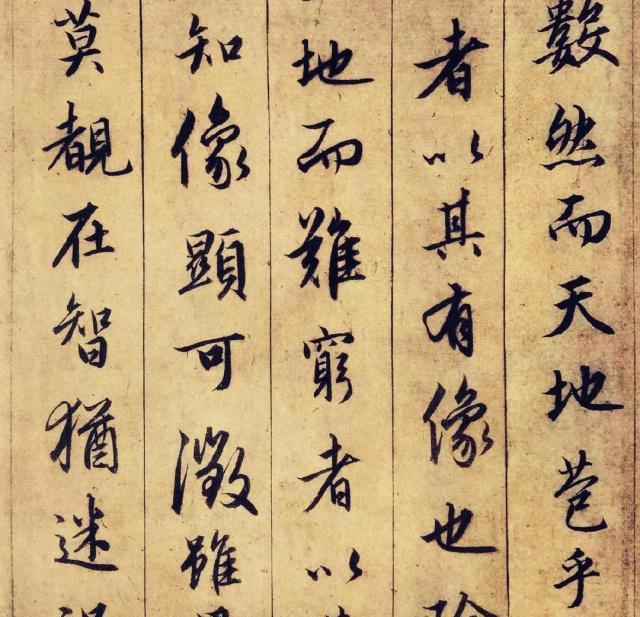 數然而天地苞乎
者以其有像也
地而難窮者以
知像顯可徵雖
莫覩在智猶迷